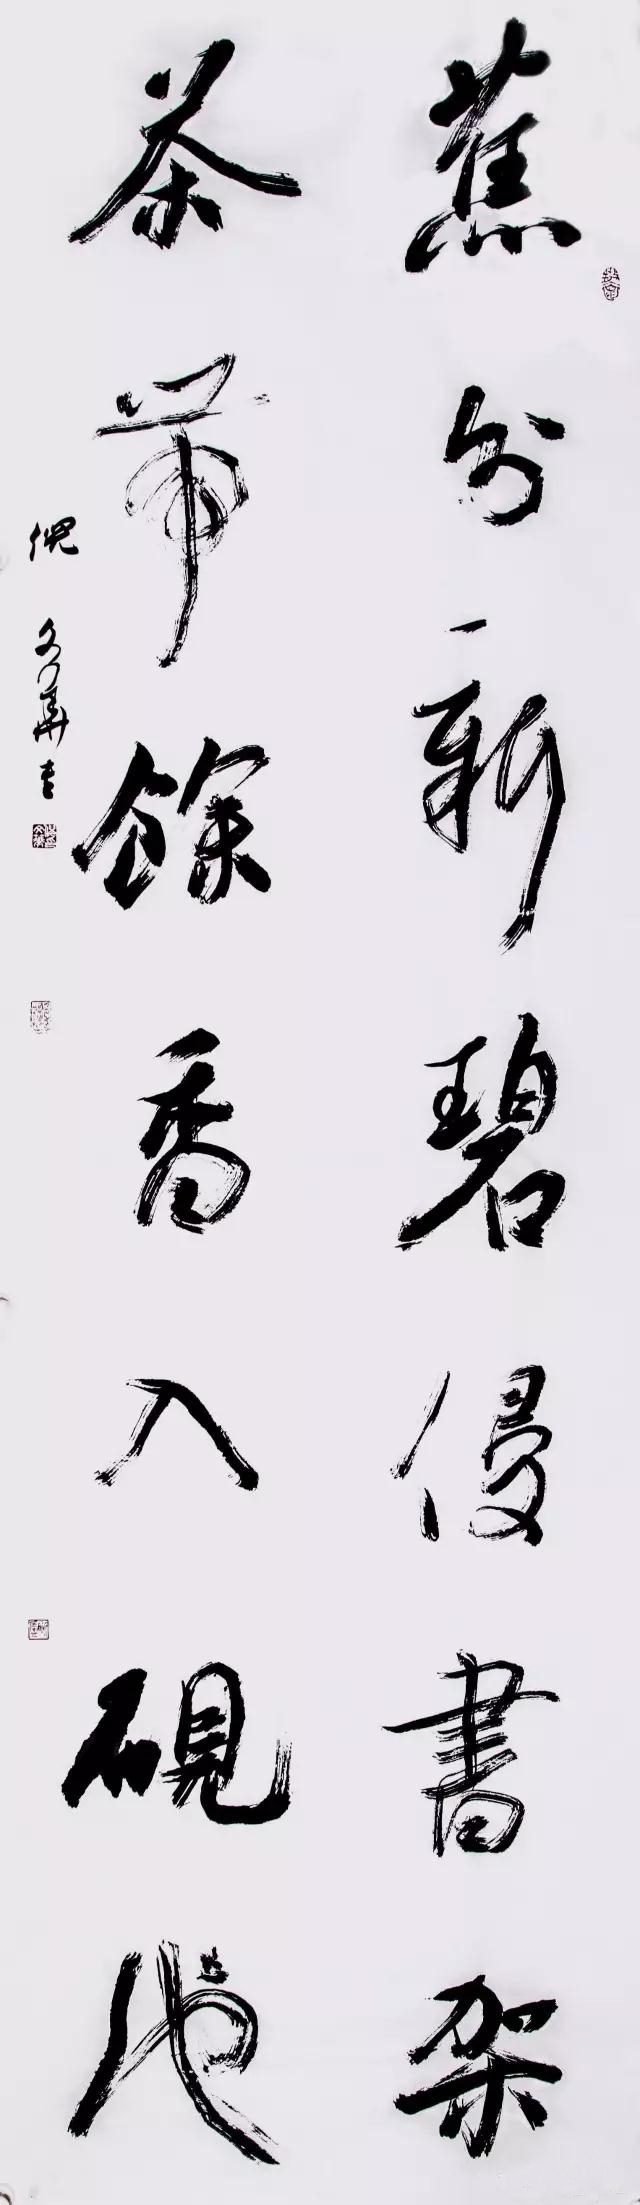 蕉分新碧侵書架
茶帶餘香入硯池
倪文華書